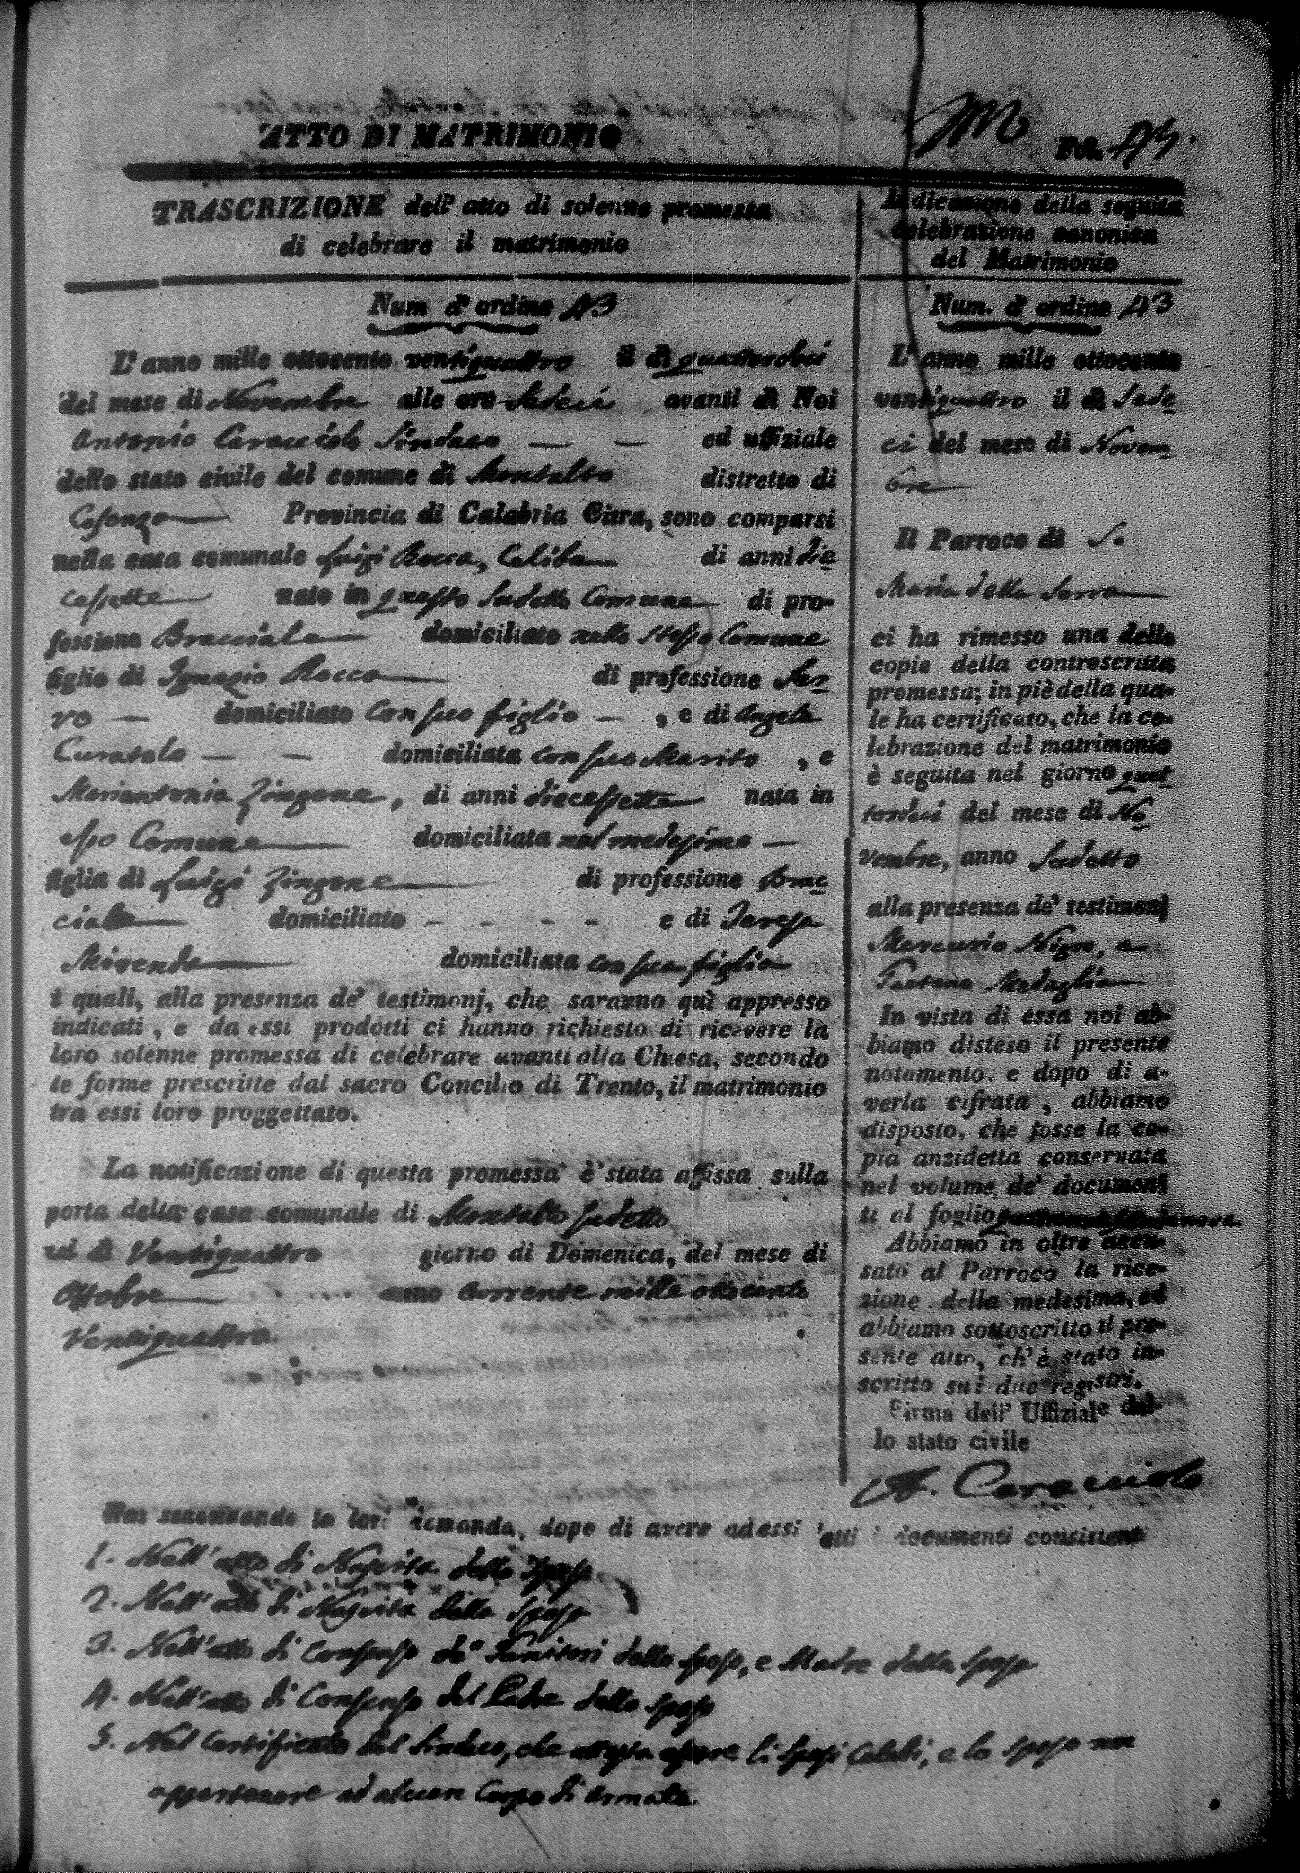 ATTO DI MATRIMONIO
Fol. 45.
TRASCRIZIONE dell' atto di solenne promessa
di celebrare il matrimonio
Num d' ordine 43
L' anno mille ottocento ventiquattro il dì quattordici
del mese di Novembre alle ore sedeci avanti di Noi
Antonio Caracciolo Sindaco — — ed uffiziale
dello stato civile del comune di Montalto distretto di
Cosenza Provincia di Calabria Citra, sono comparsi
nella casa comunale Luigi Rocca, Celibe di anni die
casette nato in questo sudetto Comune di pro-
fessione Bracciale domiciliato nello stesso Comune
figlio di Ignazio Rocco di professione Ser
vo — domiciliato con suo figlio — , e di Angela
Curatolo — — domiciliata con suo Marito , e
Mariantonia Zingone, di anni diecessette nata in
esso Comune domiciliata nel medesimo —
figlia di Luigi Zingone di professione Brac
ciale domiciliato - - - - e di Teresa
Mirenda domiciliata con sua figlia
i quali, alla presenza de' testimonj, che saranno quì appresso
indicati, e da essi prodotti ci hanno richiesto di ricevere la
loro solenne promessa di celebrare avanti alla Chiesa, secondo
le forme prescritte dal sacro Concilio di Trento, il matrimonio
tra essi loro proggettato.
La notificazione di questa promessa è stata affissa sulla
porta della casa comunale di Montalto sudetto
nel dì Ventiquattro giorno di Domenica, del mese di
Ottobre anno corrente mille ottocento
Ventiquattro.
Indicazione della seguita
celebrazione canonica
del Matrimonio
Num. d' ordine 43
L' anno mille ottocento
ventiquattro il dì sede
ci del mese di Novem
bre
Il Parroco di S.
Maria della Serra
ci ha rimesso una delle
copie della controscritta
promessa; in piè della qua-
le ha certificato, che la ce-
lebrazione del matrimonio
è seguita nel giorno quat
tordeci del mese di No
vembre, anno sudetto
alla presenza de' testimonj
Mercurio Nigro, e
Medaglia
In vista di essa noi ab-
biamo disteso il presente
notamento, e dopo di a-
verla cifrata, abbiamo
disposto, che fosse la co-
pia anzidetta conservata
nel volume de' documen
ti al foglio
Abbiamo in oltre accu-
sato al Parroco la rice-
zione della medesima, ed
abbiamo sottoscritto il pre-
sente atto, ch' è stato in-
scritto sui due registri.
Firma dell' Uffiziale del-
lo stato civile
A. Caracciolo
Noi secondando la loro domanda, dopo di avere ad essi letti i documenti consistenti
1. Nell' atto di Nascita dello sposo
2. Nell' atto di Nascita della sposa
3. Nell' atto di Consenso de' Genitori dello sposo, e Madre della sposa
4. Nell' atto di Consenso del Padre dello sposo
5. Nel Certificato del Sindaco, che attesta essere li sposi Celibi, e lo sposo non
appartenere ad alcun Corpo di armata.